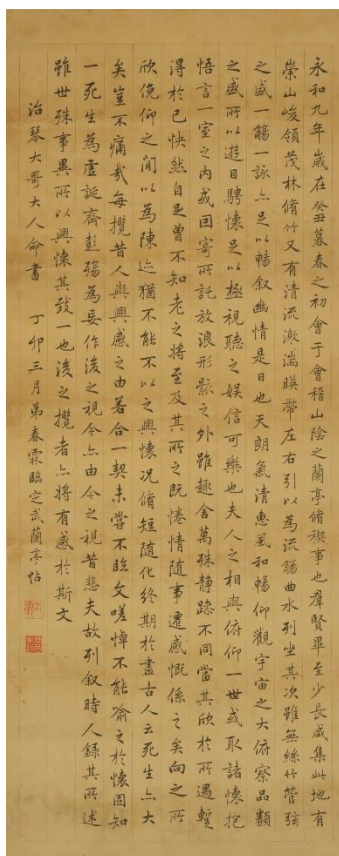 永和九年歲在癸丑暮春之初會于會稽山陰之蘭亭脩稧事也羣賢畢至少長咸集此地有
崇山峻領茂林脩竹又有清流激湍暎帶左右引以為流觴曲水列坐其次雖無絲竹管弦
之盛一觴一詠亦足以暢敘幽情是日也天朗氣清惠風和暢仰觀宇宙之大俯察品類
之盛所以遊目騁懷足以極視聽之娛信可樂也夫人之相與俯仰一世或取諸懷抱
悟言一室之內或因寄所託放浪形骸之外雖趣舍萬殊靜躁不同當其欣於所遇蹔
得於己快然自足曾不知老之將至及其所之既惓情隨事遷感慨係之矣向之所
欣俛仰之閒以為陳迹猶不能不以之興懷況脩短隨化終期於盡古人云死生亦大
矣豈不痛哉每攬昔人興興感之由若合一契未嘗不臨文嗟悼不能喻之於懷固知
一死生為虛誕齊彭殤為妄作後之視今亦由今之視昔悲夫故列敘時人錄其所述
雖世殊事異所以興懷其致一也後之攬者亦將有感於斯文
治琴大哥大人命書 丁卯三月弟春霖臨定武蘭亭帖